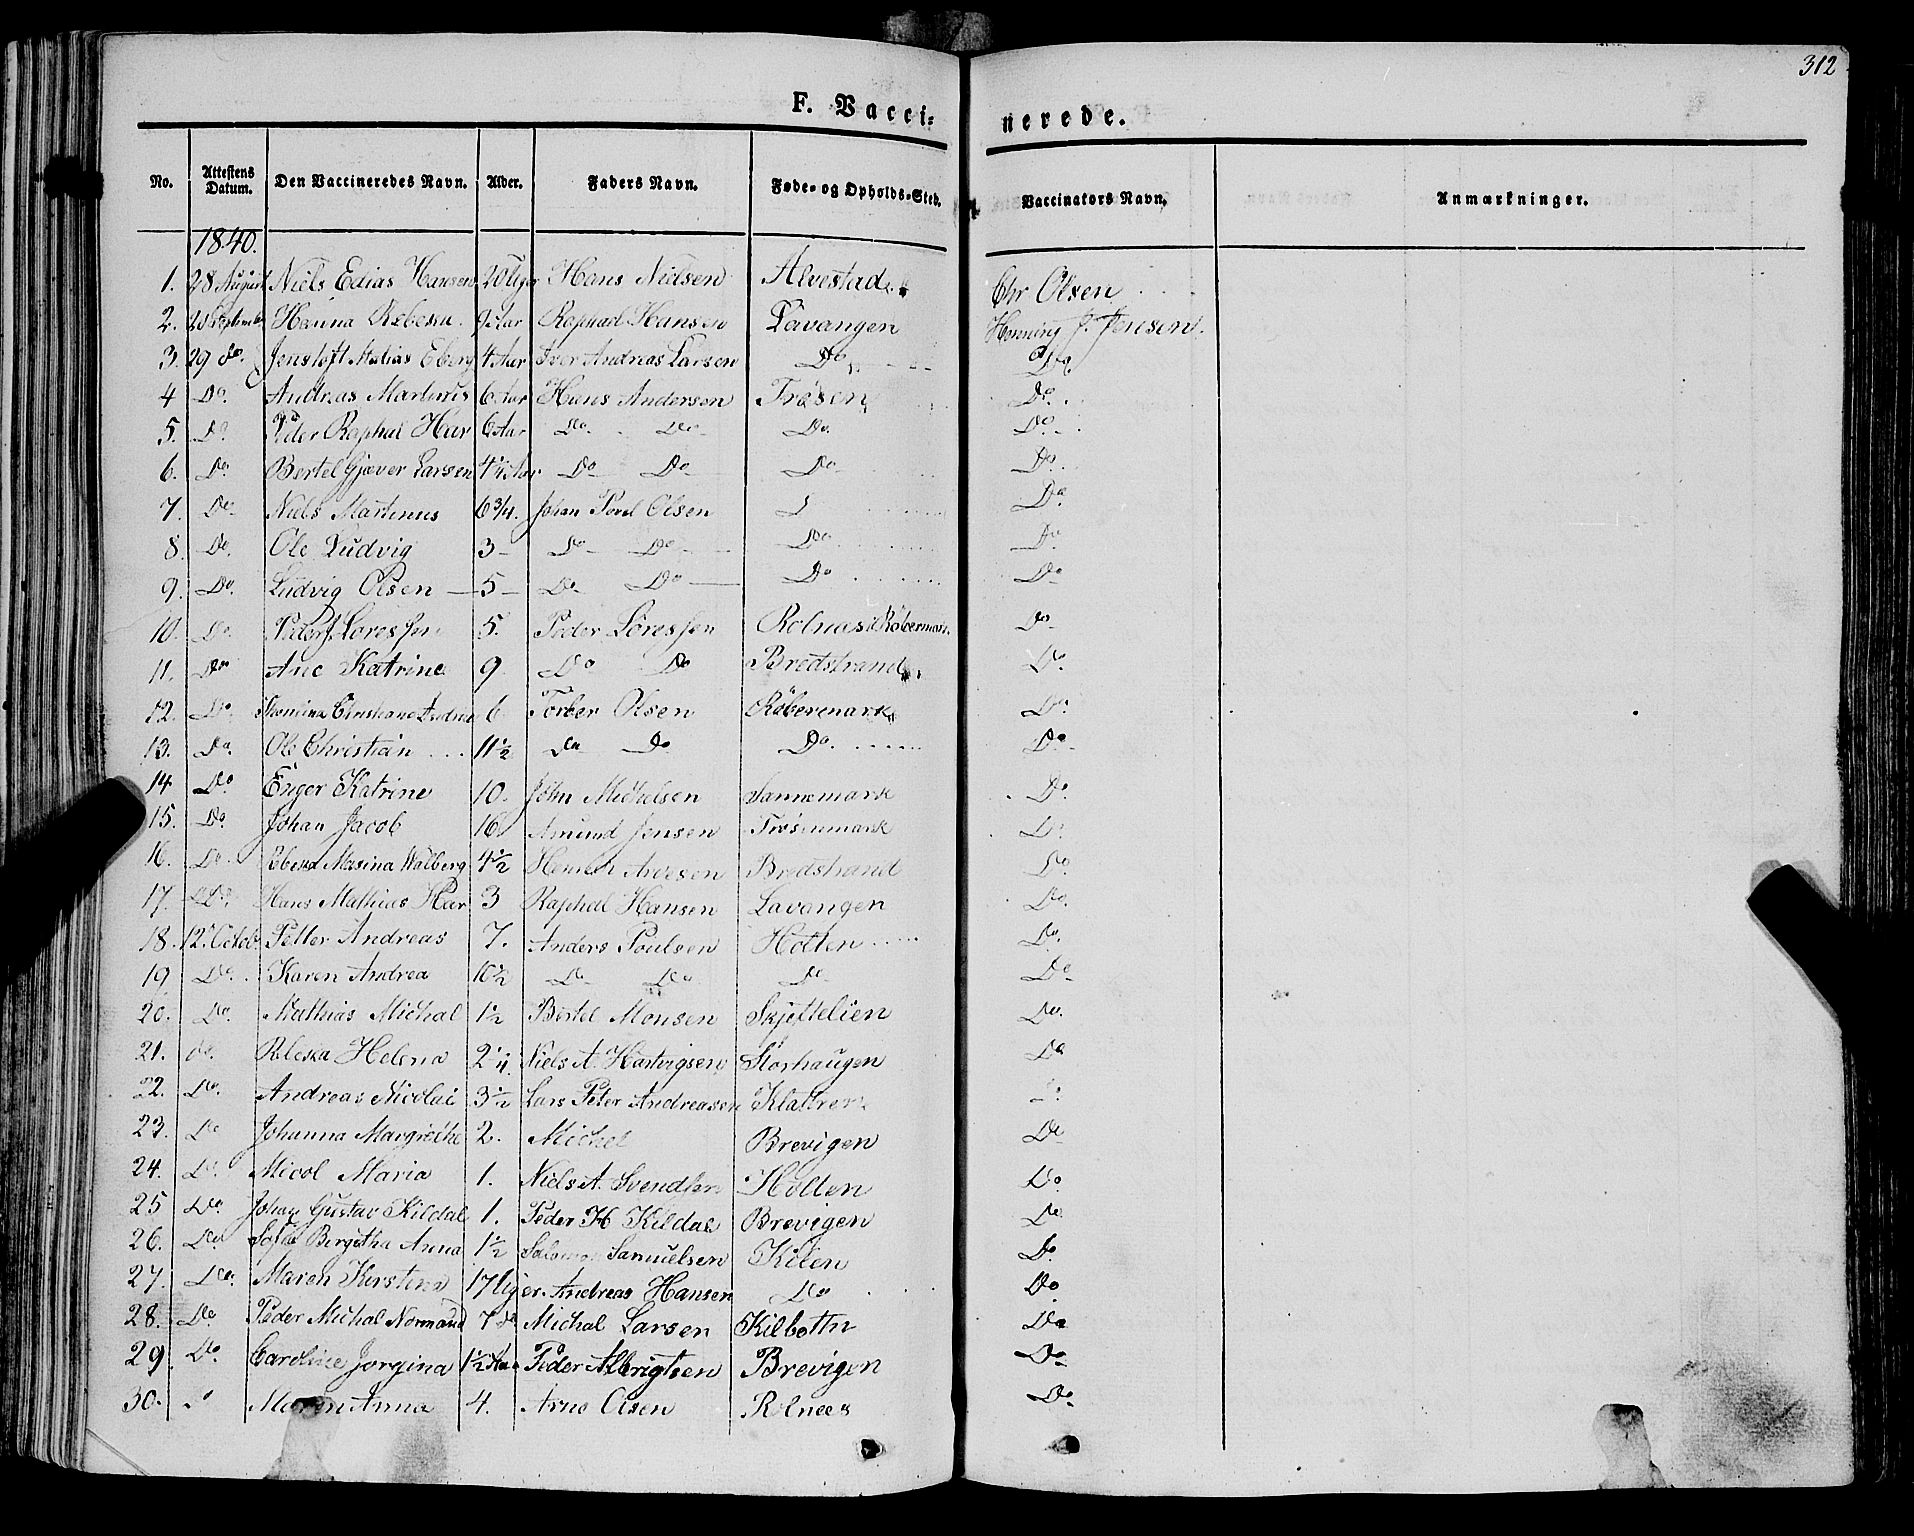 312
F. Vacci-nerede.
No. Attestens Datum. Den Vaccineredes Navn. Alder. Faders Navn. Føde- og Opholds-Sted. Vaccinators Navn. Anmærkninger.
1840.
1. 28 August Niels Edias Hansen 20 Uger Hans Nielsen Alvestad Chr Olsen
2. 20 September Hanna Rebekka 9 Aar Raphael Hansen Lavangen Henning J. Jensen.
3. 29 do. Jensloft Matias Eberg 4 Aar Iver Andreas Larsen Do Do
4 Do. Andreas Martinus 6 Aar Hans Andersen Trøsen Do.
5. Do Peder Raphal Har 6 Aar Do. Do Do. Do.
6. Do Bertel Gjæver Larsen 4 1/4 Aar Do Do Do Do
7. Do Niels Martinus 6 3/4. Johan Povel Olsen Do
8. Do. Ole Ludvig 3 Do Do Do Do
9. Do. Ludvig Olsen 5 Do Do Do Do
10. Do. Peder Loressen 5. Peder Loressen Rolnas Do
11. Do Ane Katrine 9 Do Do Bredstrand Do
12. Do. Christiane 6 Torber Olsen Röbermark Do.
13. Do. Ole Christian 11 1/2 Do Do Do. Do
14 Do Enger Katrine 10. John Michelsen Sannemark Do.
15. Do Johan Jacob 16 Amund Jensen Trøsenmark Do
16. Do. Masina Walberg 4 1/2 Henrik Bredstrand Do.
17. Do. Hans Mathias Har 3 Raphal Hansen Lavangen Do.
18. 12. Octob Petter Andreas 7. Anders Poulsen Holten Do.
19 Do. Karen Andrea 10 1/2 Do Do Do Do
20. Do. Mathias Michal 1 1/2 Bertel Monsen Skjeftelien Do.
21. do. Helena 2 1/4 Niels A. Hartvigsen Storhaugen Do
22. Do. Andreas Nicolai 3 1/2 Lars Peter Andreasen Klattren
23. Do Johanna Margrethe 2. Michel Brevigen Do
24. Do. Micol Maria 1. Niels A. Svendsen Holten Do
25 Do Johan Gustav Kildal 1. Peder H Kildal Brevigen Do
26. Do. Sofie Birgitha Anna 1 1/2 Salomon Samuelsen Kilen Do
27. Do. Maren Kirstena 17 Uger. Andreas Hansen Do Do
28. Do Peder Michal Normand 7 do Michal Larsen Kilbottn Do
29. Do. Caroline Jorgina 1 1/2 Aar Peder Albrigtsen Brevigen Do
30. Maren Anna 4. Arno Olsen Rolnees Do.